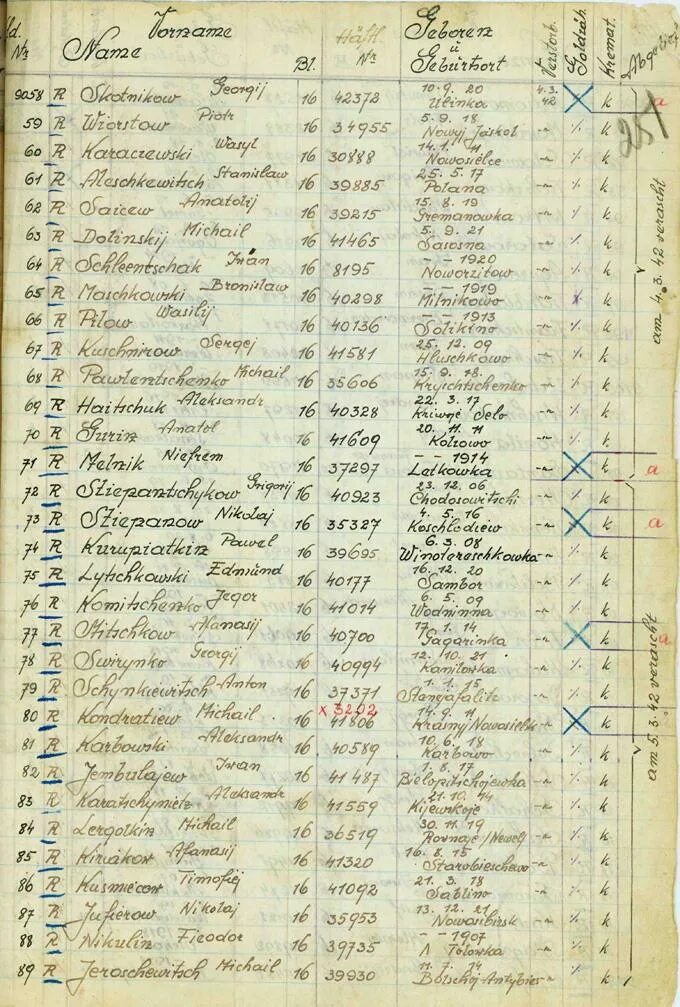 Lfd. Nr. Vorname Name Bl. Häftl. Nr. Geboren ü Gebürtsort Verstorb. Goldzäh. Kremat.
9058 R Skotnikow Georgij 16 42372 10. 9. 20 Ulinka 4.3.42 X k a
59 R Wiorstow Piotr 16 34955 5. 9. 18 Nowyj Joskol -"- % k
60 R Karaczewski Wasyl 16 30888 14. 1. 11 Nowosielce -"- % k
61 R Aleschkewitsch Stanislaw 16 39885 25. 5. 17 Polana -"- % k
62 R Saicew Anatolij 16 39215 15. 8. 19 Gremanowka -"- % k
63 R Dolinskij Michail 16 41465 5. 9. 21 Sasosna -"- % k
64 R Schleentschak Iwan 16 8195 - - 1920 Noworzitow -"- % k
65 R Maschkowski Bronislaw 16 40298 - - 1919 Milnikowo -"- % k
66 R Pilow Wasilij 16 40136 - - 1913 Solikino -"- % k
67 R Kuschnirow Sergej 16 41581 25. 12. 09 Hluschkowo -"- % k
68 R Pawlentschenko Michail 16 35606 15. 9. 18. Kryschtschenko -"- % k
69 R Haitschuk Aleksandr 16 40328 22. 3. 17 Kriwoje Selo -"- % k
70 R Gurin Anatol 16 41609 20. 11. 11 Kotzowo -"- % k
71 R Melnik Niefrem 16 37297 - - 1914 Letkowka -"- X k a
72 R Stiepantschykow Grigorij 16 40923 23. 12. 06 Chodosowitschi -"- % k
73 R Stiepanow Nikolaj 16 35327 4. 5. 16 Koschlodiew -"- X k a
74 R Kurupiatkin Pawel 16 39695 6. 3. 08 Winotereschkowka -"- % k
75 R Lytschkowski Edmünd 16 40177 16. 12. 20 Sambor -"- % k
76 R Komitschenko Jegor 16 41014 6. 5. 09 Wodninna -"- % k
77 R Mitschkow Afanasij 16 40700 17. 1. 14 Gagarinka -"- X k a
78 R Swirynko Georgij 16 40994 12. 10. 21 Kamilowka -"- % k
79 R Schynkiewitsch Anton 16 37371 1. 1. 15 -"- % k
x 3202
80 R Kondratiew Michail 16 41806 14. 9. 11 Krasny/Nowosielsk -"- X k
81 R Karbowski Aleksandr 16 40589 10. 6. 18 Karbowo -"- % k
82 R Jembulajew Iwan 16 41487 1. 8. 17 Bielopitschojewka -"- % k
83 R Karatschynietz Aleksandr 16 41559 21. 10. 14 Kijewskoje -"- % k
84 R Lergotkin Michail 16 36519 30. 11. 19 Rownoje/Newelj -"- % k
85 R Kiriakow Afanasij 16 41320 16. 8. 15 Starobieschewo -"- % k
86 R Kusmiecow Timofiej 16 41092 21. 3. 18 Sablino -"- % k
87 R Jufierow Nikolaj 16 35953 13. 12. 21 Nowosibirsk -"- % k
88 R Nikulin Fieodor 16 39735 - - 1907 Totowka -"- % k
89 R Jeroschewitsch Michail 16 39930 11. 7. 14 Bolschoj Antybies -"- % k
am 4. 3. 42 verascht
am 5. 3. 42 verascht